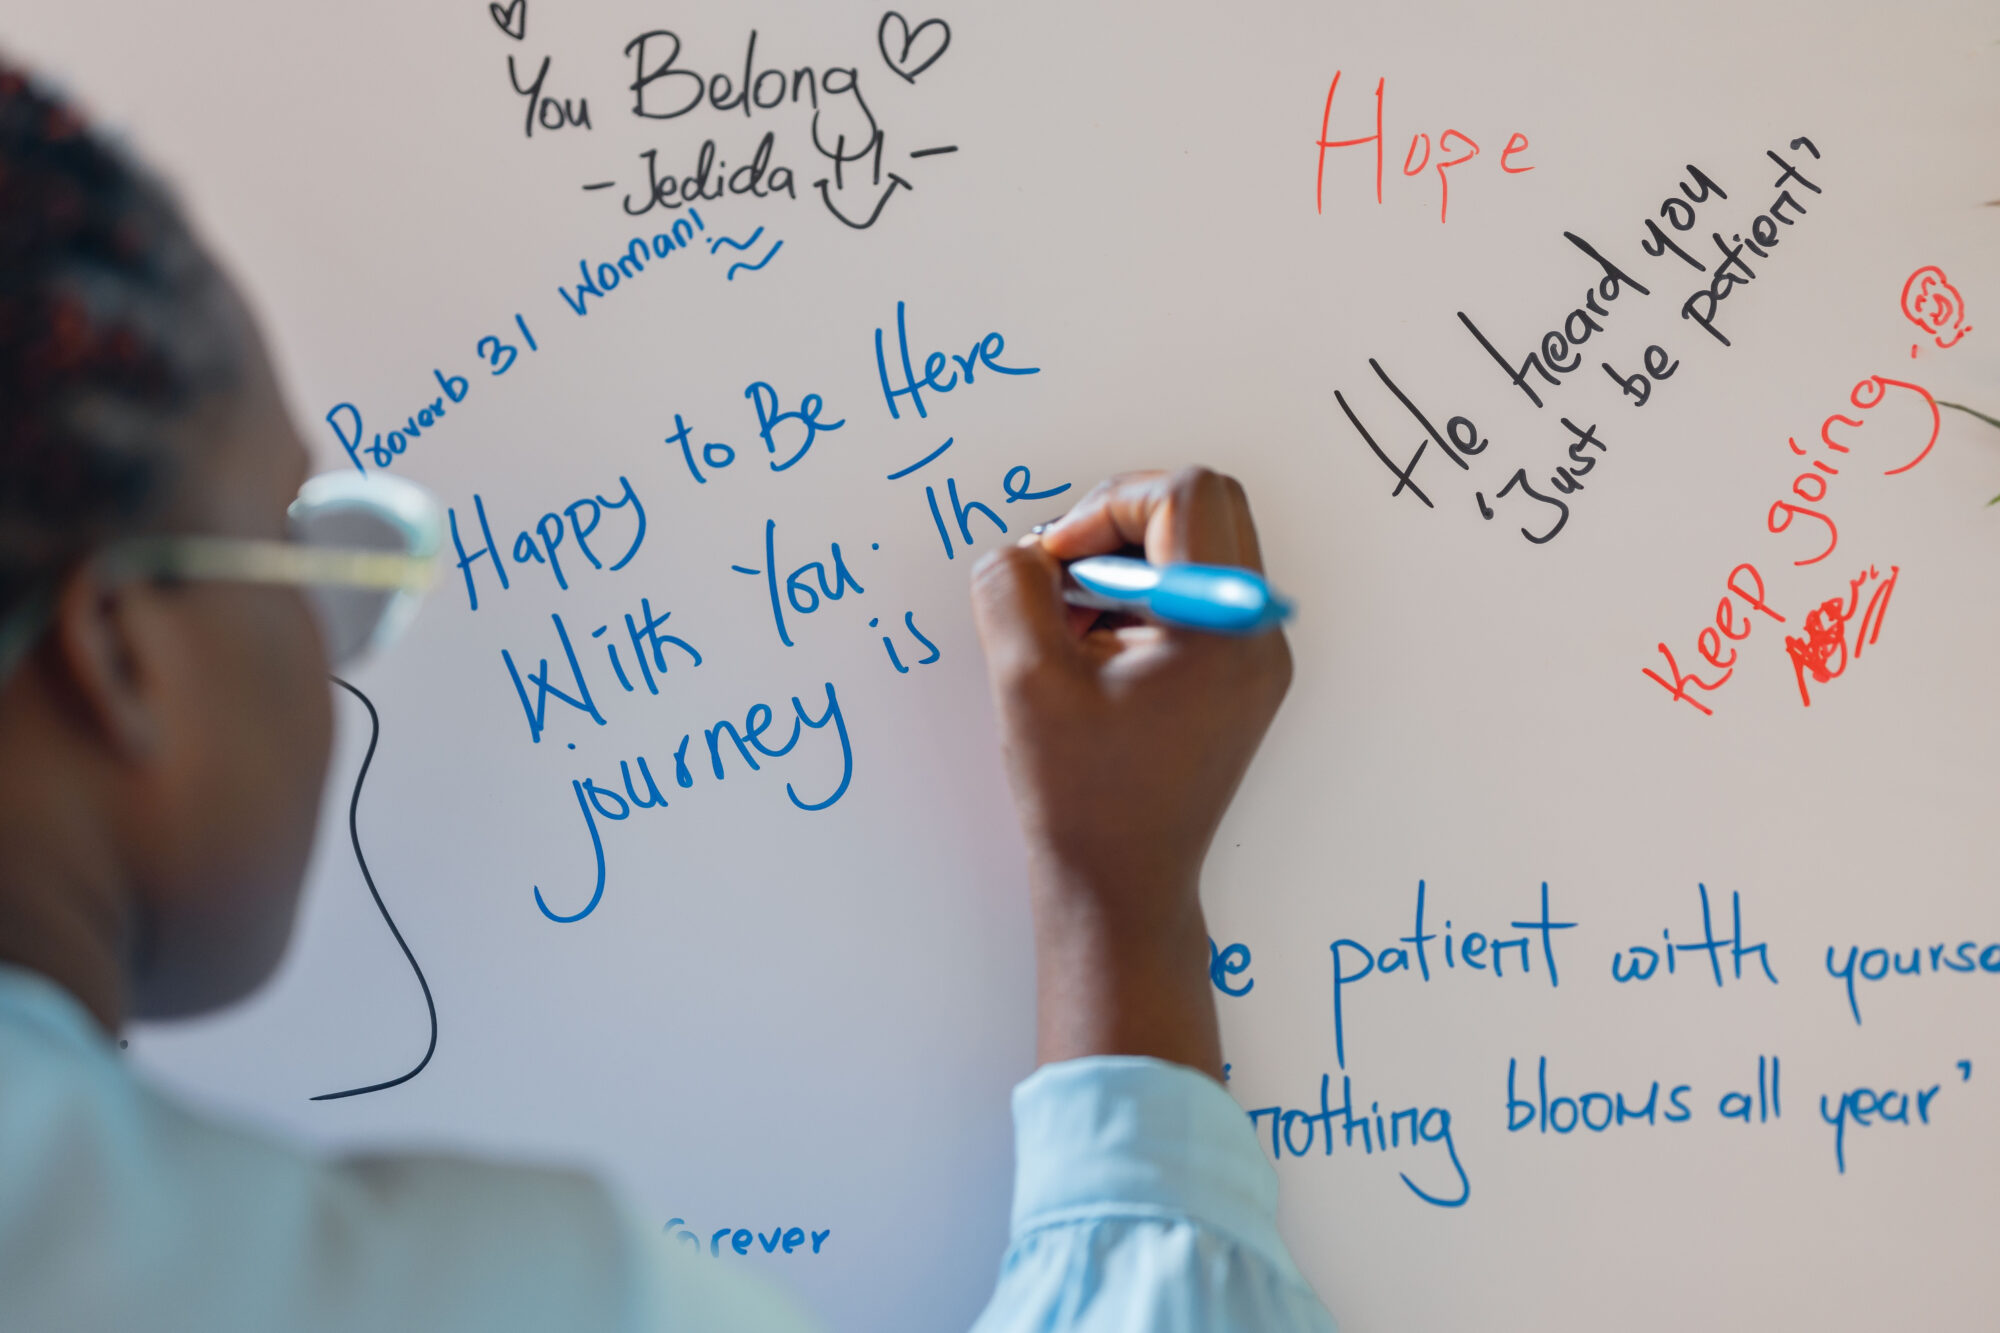 You Belong
- Jedida -
Proverb 31 Woman!
Happy to Be Here
With You. The
journey is
Hope
He heard you
'Just be patient'
Keep going.
patient with yourse
nothing blooms all year'